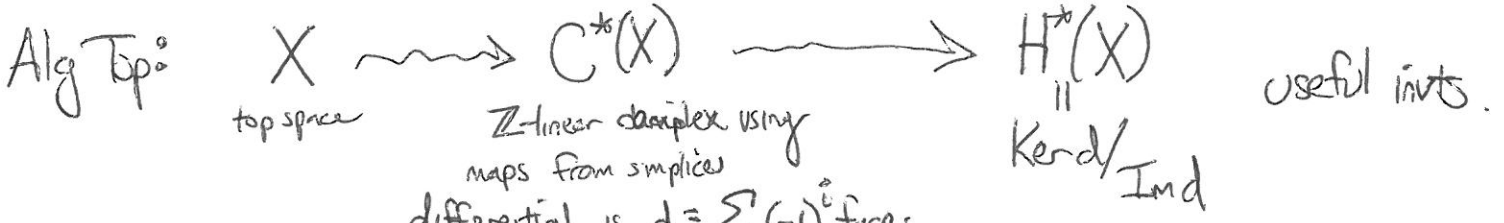 Alg Top: X ⇝ C*(X) → H*(X) useful invts.
top space ℤ-linear complex using || 
maps from simplices Ker d/Im d
differential is d = Σ (-1)^i face_i